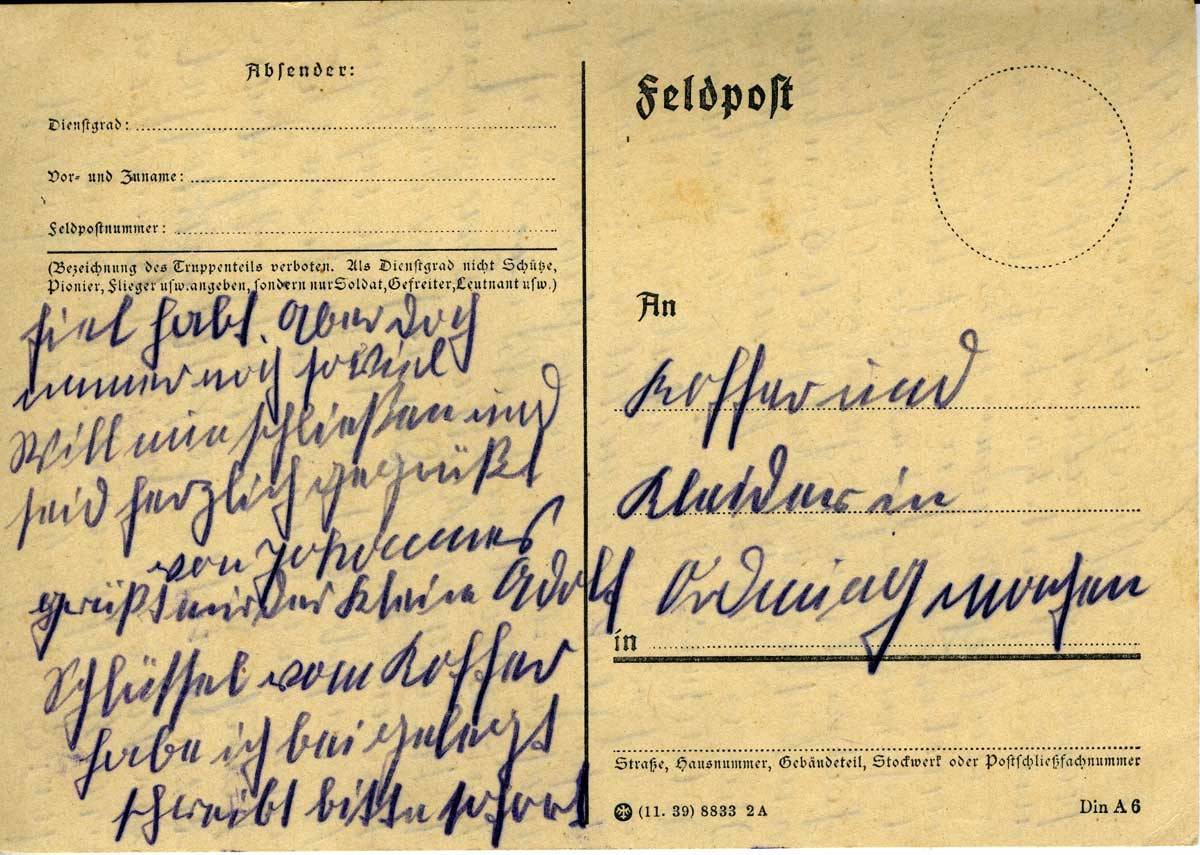 Absender:
Dienstgrad:
Vor- und Zuname:
Feldpostnummer:
(Bezeichnung des Truppenteils verboten. Als Dienstgrad nicht Schütze,
Pionier, Flieger usw. angeben, sondern nur Soldat, Gefreiter, Leutnant usw.)
fiel habt. Aber doch
immer noch so viel
Will nun schließen und
seid herzlich gegrüßt
von Johannes
grüßt mir der kleine Adolf
Schlüssel vom Koffer
habe ich bei gelegt
schreibt bitte sofort
Feldpost
An
Koffer und
Kleider in
Ordnung machen
in
Straße, Hausnummer, Gebäudeteil, Stockwerk oder Postschließfachnummer
(11. 39) 8833 2 A
Din A 6